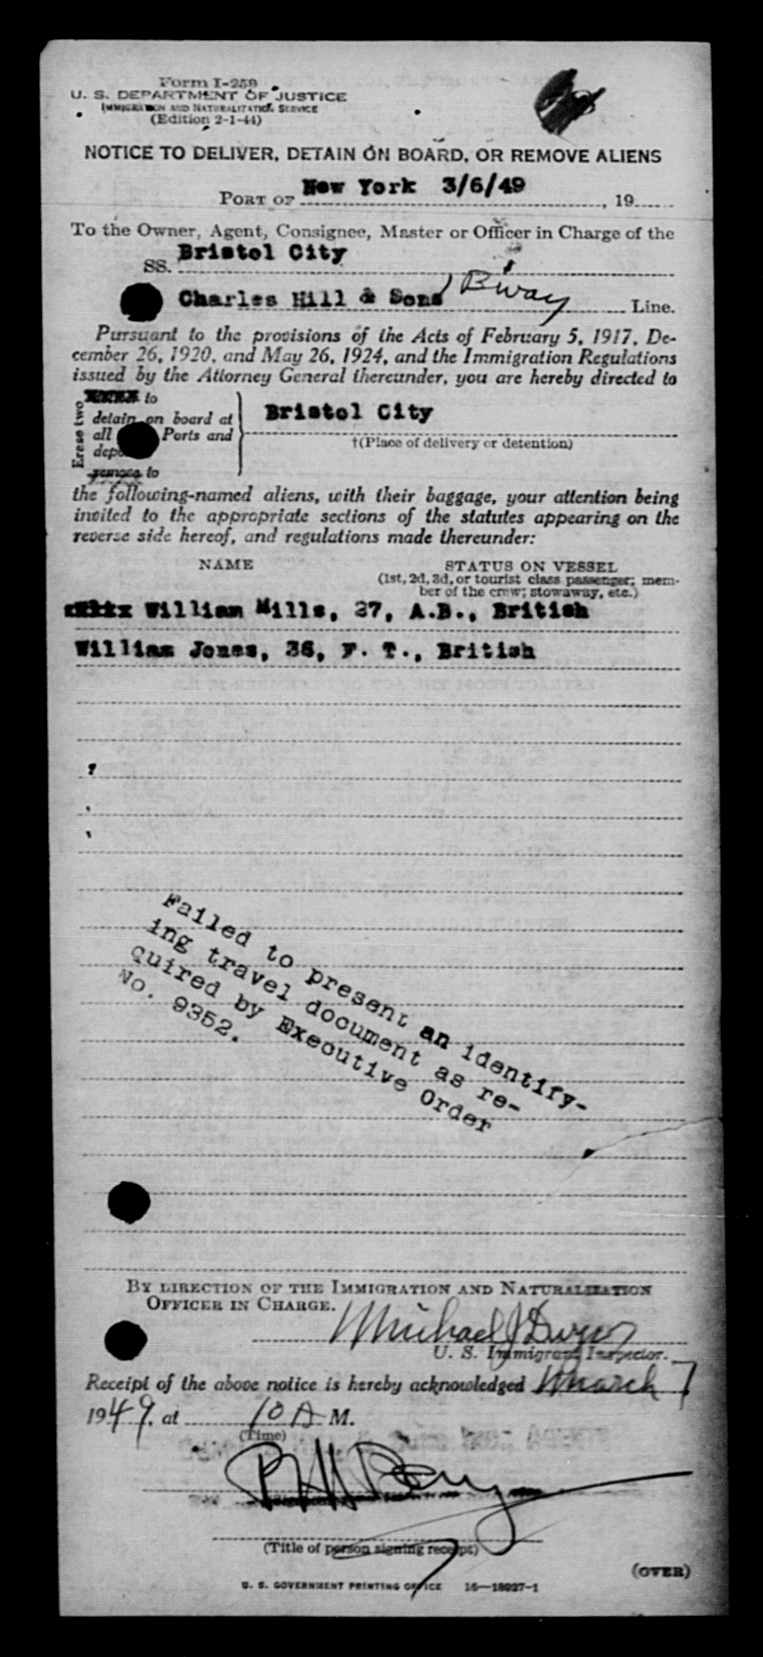 Form I-259
U. S. DEPARTMENT OF JUSTICE
IMMIGRATION AND NATURALIZATION SERVICE
(Edition 2-1-44)
NOTICE TO DELIVER, DETAIN ON BOARD, OR REMOVE ALIENS
PORT OF New York 3/6/49, 19
To the Owner, Agent, Consignee, Master or Officer in Charge of the
SS. Bristol City
Charles Hill & Sons B'way Line.
Pursuant to the provisions of the Acts of February 5, 1917, De-
cember 26, 1920, and May 26, 1924, and the Immigration Regulations
issued by the Attorney General thereunder, you are hereby directed to
Erase two
to
detain on board at
all Ports and
remove to
Bristol City
†(Place of delivery or detention)
the following-named aliens, with their baggage, your attention being
invited to the appropriate sections of the statutes appearing on the
reverse side hereof, and regulations made thereunder:
NAME STATUS ON VESSEL
(1st, 2d, 3d, or tourist class passenger; mem-
ber of the crew; stowaway, etc.)
William Mills, 27, A.B., British
William Jones, 36, F. T., British
Failed to present an identify-
ing travel document as re-
quired by Executive Order
No. 9352.
BY DIRECTION OF THE IMMIGRATION AND NATURALIZATION
OFFICER IN CHARGE.
Michael J
U. S. Immigrant Inspector.
Receipt of the above notice is hereby acknowledged March 7
1949, at 10 A M.
(Time)
(Title of person signing receipt)
(OVER)
U. S. GOVERNMENT PRINTING OFFICE 16—18927-1